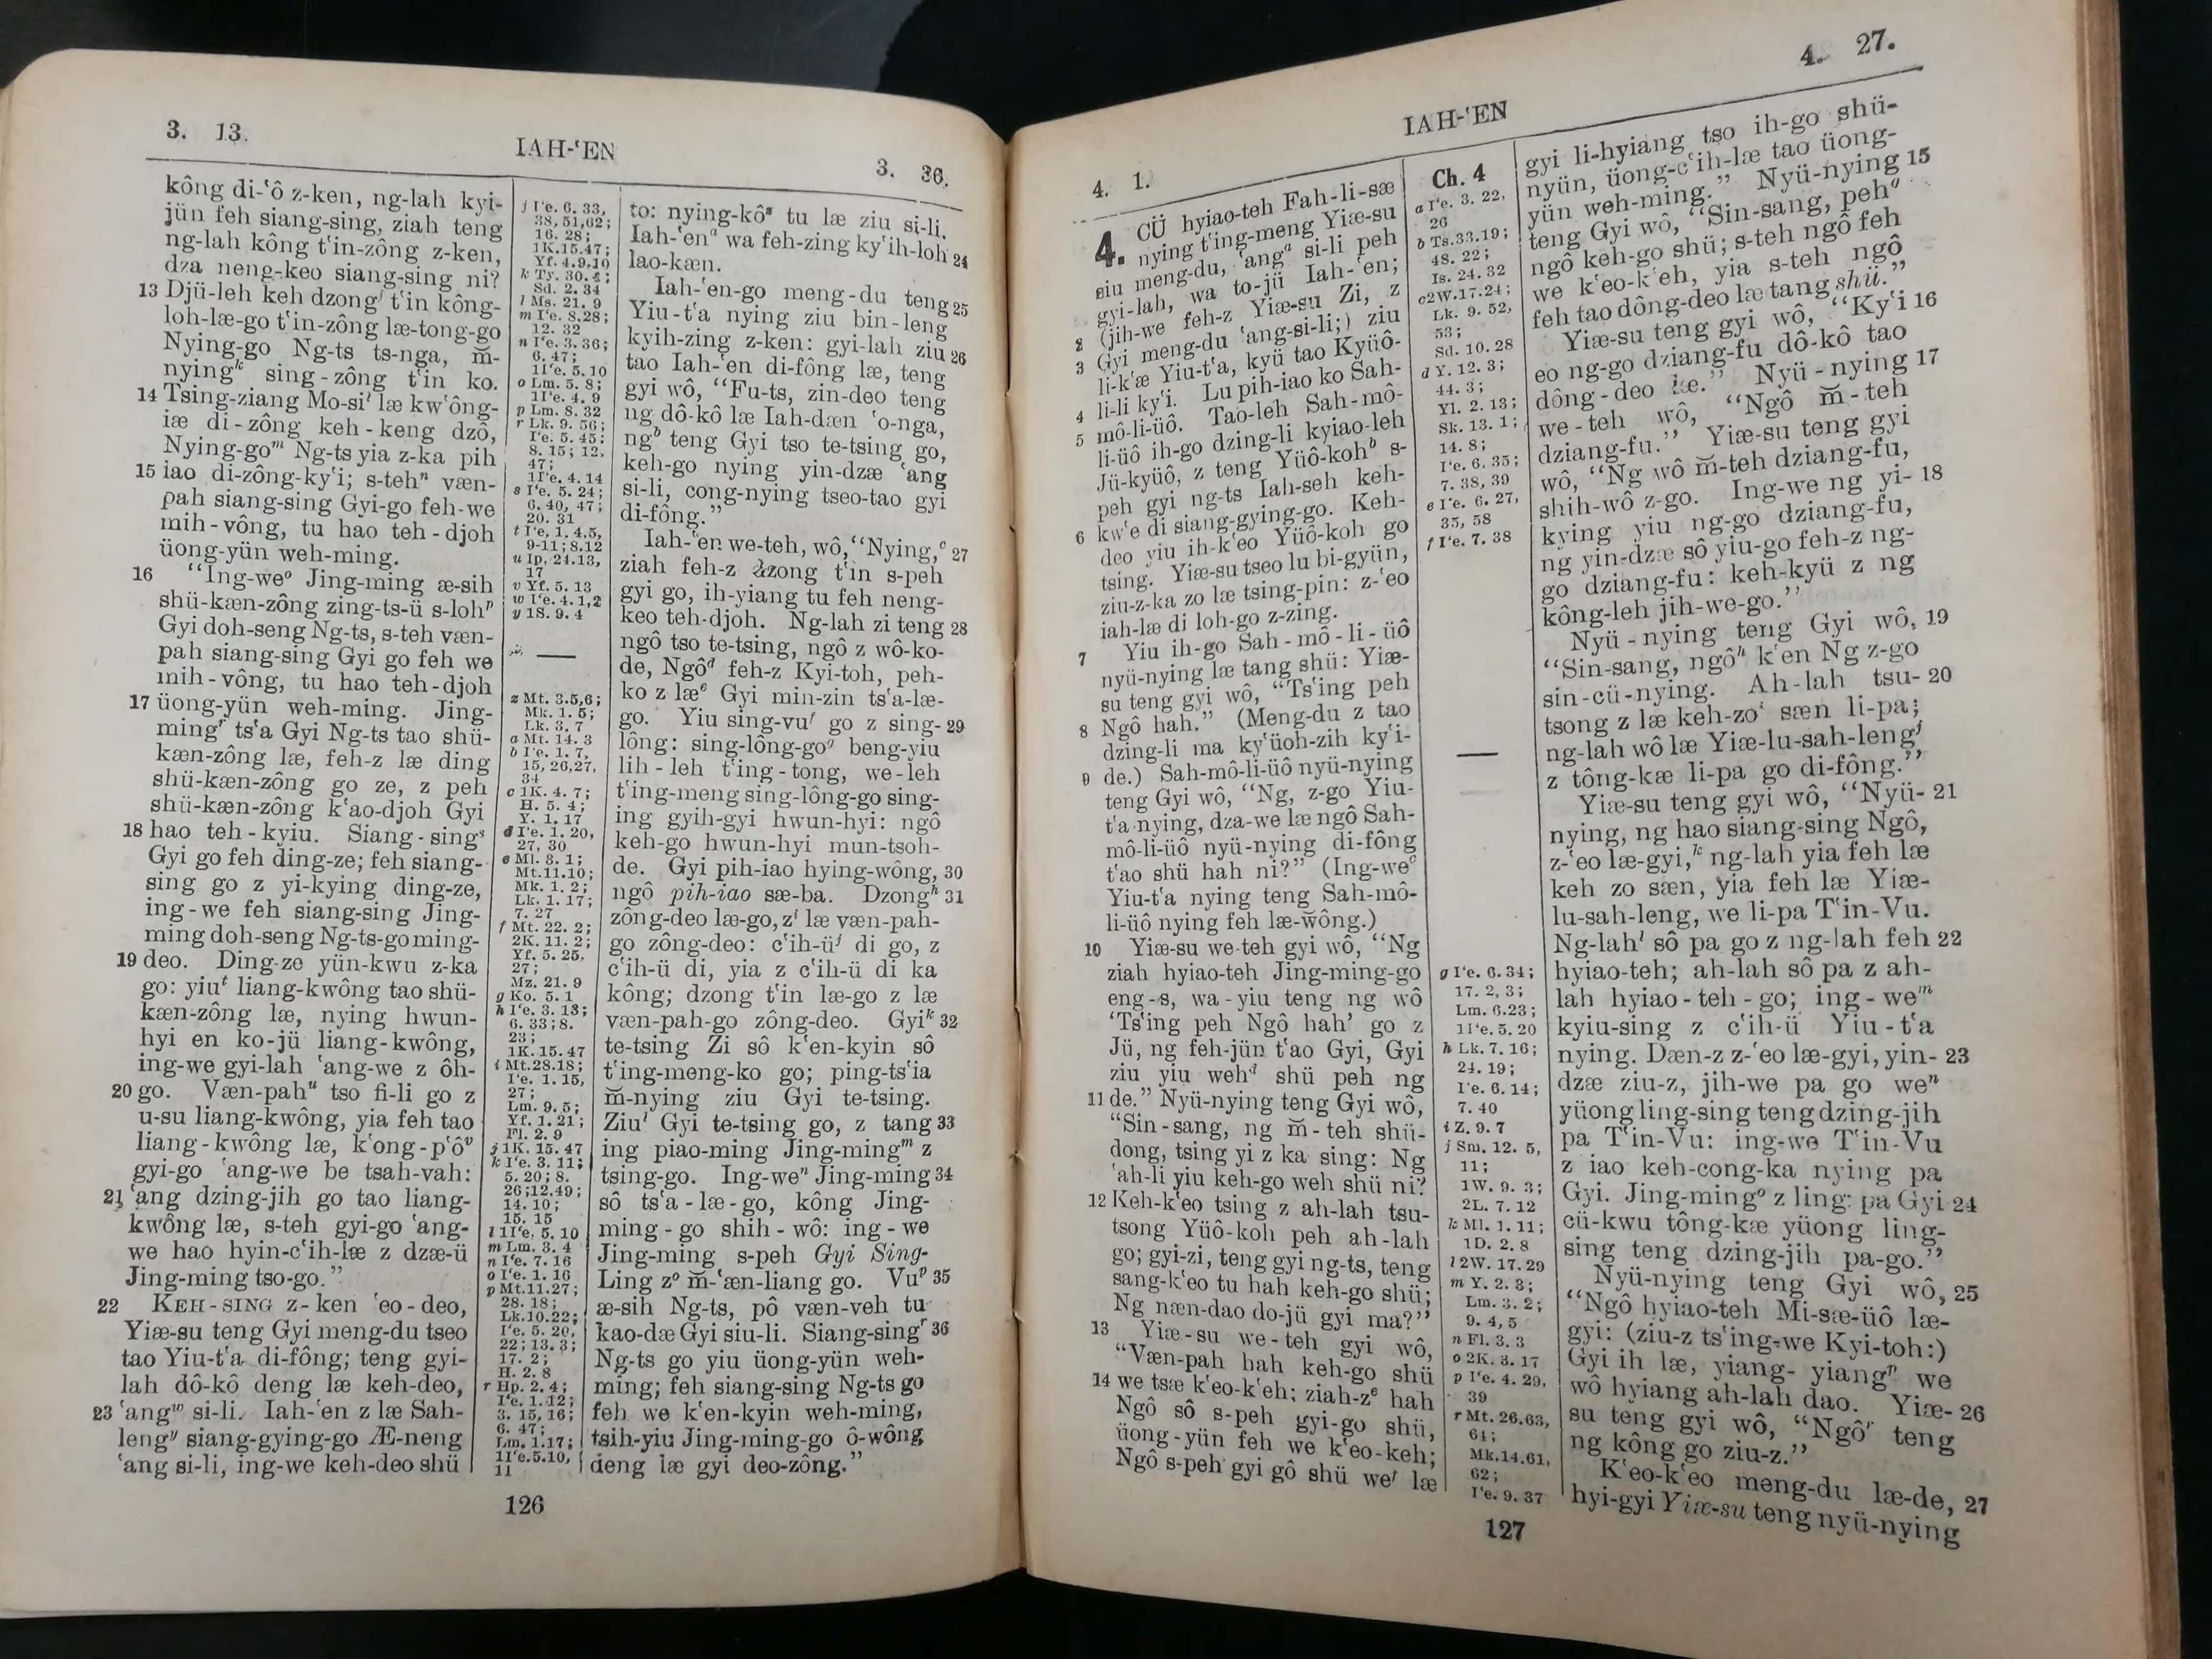 3. 13.
IAH-ʻEN
3. 36.
kông di-ʻô z-ken, ng-lah kyi-
jün feh siang-sing, ziah teng
ng-lah kông tʻin-zông z-ken,
dza neng-keo siang-sing ni?
13 Djü-leh keh dzongʲ tʻin kông-
loh-læ-go tʻin-zông læ-tong-go
Nying-go Ng-ts ts-nga, m̆-
nyingᵏ sing-zông tʻin ko.
14 Tsing-ziang Mo-siˡ læ kwʻông-
iæ di-zông keh-keng dzô,
Nying-goᵐ Ng-ts yia z-ka pih
15 iao di-zông-kyʻi; s-tehⁿ væn-
pah siang-sing Gyi-go feh-we
mih-vông, tu hao teh-djoh
üong-yün weh-ming.
16 “Ing-weᵒ Jing-ming æ-sih
shü-kæn-zông zing-ts-ü s-lohᵖ
Gyi doh-seng Ng-ts, s-teh væn-
pah siang-sing Gyi go feh we
mih-vông, tu hao teh-djoh
17 üong-yün weh-ming. Jing-
mingʳ tsʻa Gyi Ng-ts tao shü-
kæn-zông læ, feh-z læ ding
shü-kæn-zông go ze, z peh
shü-kæn-zông kʻao-djoh Gyi
18 hao teh-kyiu. Siang-singˢ
Gyi go feh ding-ze; feh siang-
sing go z yi-kying ding-ze,
ing-we feh siang-sing Jing-
ming doh-seng Ng-ts-go ming-
19 deo. Ding-ze yün-kwu z-ka
go: yiuᵗ liang-kwông tao shü-
kæn-zông læ, nying hwun-
hyi en ko-jü liang-kwông,
ing-we gyi-lah ʻang-we z ôh-
20 go. Væn-pahᵘ tso fi-li go z
u-su liang-kwông, yia feh tao
liang-kwông læ, kʻong-pʻôᵛ
gyi-go ʻang-we be tsah-vah:
21 ʻang dzing-jih go tao liang-
kwông læ, s-teh gyi-go ʻang-
we hao hyin-cʻih-læ z dzæ-ü
Jing-ming tso-go.”
22 KEH-SING z-ken ʻeo-deo,
Yiæ-su teng Gyi meng-du tseo
tao Yiu-tʻa di-fông; teng gyi-
lah dô-kô deng læ keh-deo,
23 ʻangʷ si-li. Iah-ʻen z læ Sah-
lengʸ siang-gying-go Æ-neng
ʻang si-li, ing-we keh-deo shü
j Iʻe. 6. 33,
38, 51, 62;
16. 28;
1K.15.47;
Yf. 4.9.10
k Ty. 30.4;
Sd. 2. 34
l Ms. 21. 9
m Iʻe. 8.28;
12. 32
n Iʻe. 3. 36;
6. 47;
1Iʻe. 5. 10
o Lm. 5. 8;
1Iʻe. 4. 9
p Lm. 8. 32
r Lk. 9. 56;
Iʻe. 5. 45;
8. 15; 12,
47;
1Iʻe. 4. 14
s Iʻe. 5. 24;
6. 40, 47;
20. 31
t Iʻe. 1. 4,5,
9-11; 8.12
u Ip. 24.13,
17
v Yf. 5. 13
w Iʻe. 4. 1,2
y 1S. 9. 4
z Mt. 3.5,6;
Mk. 1. 5;
Lk. 3. 7
a Mt. 14. 3
b Iʻe. 1. 7,
15, 26,27,
34
c 1K. 4. 7;
H. 5. 4;
Y. 1. 17
d Iʻe. 1. 20,
27, 30
e Ml. 3. 1;
Mt.11.10;
Mk. 1. 2;
Lk. 1. 17;
7. 27
f Mt. 22. 2;
2K. 11. 2;
Yf. 5. 25,
27;
Mz. 21. 9
g Ko. 5. 1
h Iʻe. 3. 13;
6. 33; 8.
23;
1K. 15. 47
i Mt.28.18;
Iʻe. 1. 15,
27;
Lm. 9. 5;
Yf. 1. 21;
Fl. 2. 9
j 1K. 15. 47
k Iʻe. 3. 11;
5. 20; 8.
26;12.49;
14. 10;
15. 15
l 1Iʻe. 5. 10
m Lm. 3. 4
n Iʻe. 7. 16
o Iʻe. 1. 16
p Mt.11.27;
28. 18;
Lk.10.22;
Iʻe. 5. 20,
22; 13. 3;
17. 2;
H. 2. 8
r Hp. 2. 4;
Iʻe. 1.12;
3. 15, 16;
6. 47;
Lm. 1.17;
1Iʻe.5.10,
11
to: nying-kôᶻ tu læ ziu si-li.
Iah-ʻenᵃ wa feh-zing kyʻih-loh 24
lao-kæn.
Iah-ʻen-go meng-du teng 25
Yiu-tʻa nying ziu bin-leng
kyih-zing z-ken: gyi-lah ziu 26
tao Iah-ʻen di-fông læ, teng
gyi wô, “Fu-ts, zin-deo teng
ng dô-kô læ Iah-dæn ʻo-nga,
ngᵇ teng Gyi tso te-tsing go,
keh-go nying yin-dzæ ʻang
si-li, cong-nying tseo-tao gyi
di-fông.”
Iah-ʻen we-teh, wô, “Nying,ᶜ 27
ziah feh-z dzong tʻin s-peh
gyi go, ih-yiang tu feh neng-
keo teh-djoh. Ng-lah zi teng 28
ngô tso te-tsing, ngô z wô-ko-
de, Ngôᵈ feh-z Kyi-toh, peh-
ko z læᵉ Gyi min-zin tsʻa-læ-
go. Yiu sing-vuᶠ go z sing- 29
lông: sing-lông-goᵍ beng-yiu
lih-leh tʻing-tong, we-leh
tʻing-meng sing-lông-go sing-
ing gyih-gyi hwun-hyi: ngô
keh-go hwun-hyi mun-tsoh-
de. Gyi pih-iao hying-wông, 30
ngô pih-iao sæ-ba. Dzongʰ 31
zông-deo læ-go, zⁱ læ væn-pah-
go zông-deo: cʻih-üʲ di go, z
cʻih-ü di, yia z cʻih-ü di ka
kông; dzong tʻin læ-go z læ
væn-pah-go zông-deo. Gyiᵏ 32
te-tsing Zi sô kʻen-kyin sô
tʻing-meng-ko go; ping-tsʻia
m̆-nying ziu Gyi te-tsing.
Ziuˡ Gyi te-tsing go, z tang 33
ing piao-ming Jing-mingᵐ z
tsing-go. Ing-weⁿ Jing-ming 34
sô tsʻa-læ-go, kông Jing-
ming-go shih-wô: ing-we
Jing-ming s-peh Gyi Sing-
Ling zᵒ m̆-ʻæn-liang go. Vuᵖ 35
æ-sih Ng-ts, pô væn-veh tu
kao-dæ Gyi siu-li. Siang-singʳ 36
Ng-ts go yiu üong-yün weh-
ming; feh siang-sing Ng-ts go
feh we kʻen-kyin weh-ming,
tsih-yiu Jing-ming-go ô-wông
deng læ gyi deo-zông.”
126
4. 1.
IAH-ʻEN
4. 27.
4. CÜ hyiao-teh Fah-li-sæ
nying tʻing-meng Yiæ-su
siu meng-du, ʻangᵃ si-li peh
gyi-lah, wa to-jü Iah-ʻen;
2 (jih-we feh-z Yiæ-su Zi, z
3 Gyi meng-du ʻang-si-li;) ziu
li-kʻæ Yiu-tʻa, kyü tao Kyüô-
4 li-li kyʻi. Lu pih-iao ko Sah-
5 mô-li-üô. Tao-leh Sah-mô-
li-üô ih-go dzing-li kyiao-leh
Jü-kyüô, z teng Yüô-kohᵇ s-
peh gyi ng-ts Iah-seh keh-
6 kwʻe di siang-gying-go. Keh-
deo yiu ih-kʻeo Yüô-koh go
tsing. Yiæ-su tseo lu bi-gyün,
ziu-z-ka zo læ tsing-pin: z-ʻeo
iah-læ di loh-go z-zing.
7 Yiu ih-go Sah-mô-li-üô
nyü-nying læ tang shü: Yiæ-
su teng gyi wô, “Tsʻing peh
8 Ngô hah.” (Meng-du z tao
dzing-li ma kyʻüoh-zih kyʻi-
9 de.) Sah-mô-li-üô nyü-nying
teng Gyi wô, “Ng, z-go Yiu-
tʻa nying, dza-we læ ngô Sah-
mô-li-üô nyü-nying di-fông
tʻao shü hah ni?” (Ing-weᶜ
Yiu-tʻa nying teng Sah-mô-
li-üô nying feh læ-wông.)
10 Yiæ-su we-teh gyi wô, “Ng
ziah hyiao-teh Jing-ming-go
eng-s, wa-yiu teng ng wô
ʻTsʻing peh Ngô hahʼ go z
Jü, ng feh-jün tʻao Gyi, Gyi
ziu yiu wehᵈ shü peh ng
11 de.” Nyü-nying teng Gyi wô,
“Sin-sang, ng m̆-teh shü-
dong, tsing yi z ka sing: Ng
ʻah-li yiu keh-go weh shü ni?
12 Keh-kʻeo tsing z ah-lah tsu-
tsong Yüô-koh peh ah-lah
go; gyi-zi, teng gyi ng-ts, teng
sang-kʻeo tu hah keh-go shü;
Ng næn-dao do-jü gyi ma?”
13 Yiæ-su we-teh gyi wô,
“Væn-pah hah keh-go shü
14 we tsæ kʻeo-kʻeh: ziah-zᵉ hah
Ngô sô s-peh gyi-go shü,
üong-yün feh we kʻeo-keh;
Ngô s-peh gyi gô shü weᶠ læ
Ch. 4
a Iʻe. 3. 22,
26
b Ts.33.19;
48. 22;
Is. 24. 32
c2W.17.24;
Lk. 9. 52,
53;
Sd. 10. 28
d Y. 12. 3;
44. 3;
Yl. 2. 13;
Sk. 13. 1;
14. 8;
Iʻe. 6. 35;
7. 38, 39
e Iʻe. 6. 27,
35, 58
f Iʻe. 7. 38
g Iʻe. 6. 34;
17. 2, 3;
Lm. 6.23;
1Iʻe. 5. 20
h Lk. 7. 16;
24. 19;
Iʻe. 6. 14;
7. 40
i Z. 9. 7
j Sm. 12. 5,
11;
1W. 9. 3;
2L. 7. 12
k Ml. 1. 11;
1D. 2. 8
l 2W. 17. 29
m Y. 2. 3;
Lm. 3. 2;
9. 4, 5
n Fl. 3. 3
o 2K. 3. 17
p Iʻe. 4. 29,
39
r Mt. 26.63,
64;
Mk.14.61,
62;
Iʻe. 9. 37
gyi li-hyiang tso ih-go shü-
nyün, üong-cʻih-læ tao üong-
yün weh-ming.” Nyü-nying 15
teng Gyi wô, “Sin-sang, pehᵍ
ngô keh-go shü; s-teh ngô feh
we kʻeo-kʻeh, yia s-teh ngô
feh tao dông-deo læ tang shü.”
Yiæ-su teng gyi wô, “Kyʻi 16
eo ng-go dziang-fu dô-kô tao
dông-deo læ.” Nyü-nying 17
we-teh wô, “Ngô m̆-teh
dziang-fu.” Yiæ-su teng gyi
wô, “Ng wô m̆-teh dziang-fu,
shih-wô z-go. Ing-we ng yi- 18
kying yiu ng-go dziang-fu,
ng yin-dzæ sô yiu-go feh-z ng-
go dziang-fu: keh-kyü z ng
kông-leh jih-we-go.”
Nyü-nying teng Gyi wô, 19
“Sin-sang, ngôʰ kʻen Ng z-go
sin-cü-nying. Ah-lah tsu- 20
tsong z læ keh-zoⁱ sæn li-pa;
ng-lah wô læ Yiæ-lu-sah-lengʲ
z tông-kæ li-pa go di-fông.”
Yiæ-su teng gyi wô, “Nyü- 21
nying, ng hao siang-sing Ngô,
z-ʻeo læ-gyi,ᵏ ng-lah yia feh læ
keh zo sæn, yia feh læ Yiæ-
lu-sah-leng, we li-pa Tʻin-Vu.
Ng-lahˡ sô pa go z ng-lah feh 22
hyiao-teh; ah-lah sô pa z ah-
lah hyiao-teh-go; ing-weᵐ
kyiu-sing z cʻih-ü Yiu-tʻa
nying. Dæn-z z-ʻeo læ-gyi, yin- 23
dzæ ziu-z, jih-we pa go weⁿ
yüong ling-sing teng dzing-jih
pa Tʻin-Vu: ing-we Tʻin-Vu
z iao keh-cong-ka nying pa
Gyi. Jing-mingᵒ z ling: pa Gyi 24
cü-kwu tông-kæ yüong ling-
sing teng dzing-jih pa-go.”
Nyü-nying teng Gyi wô, 25
“Ngô hyiao-teh Mi-sæ-üô læ-
gyi: (ziu-z tsʻing-we Kyi-toh:)
Gyi ih læ, yiang-yiangᵖ we
wô hyiang ah-lah dao. Yiæ- 26
su teng gyi wô, “Ngôʳ teng
ng kông go ziu-z.”
Kʻeo-kʻeo meng-du læ-de, 27
hyi-gyi Yiæ-su teng nyü-nying
127